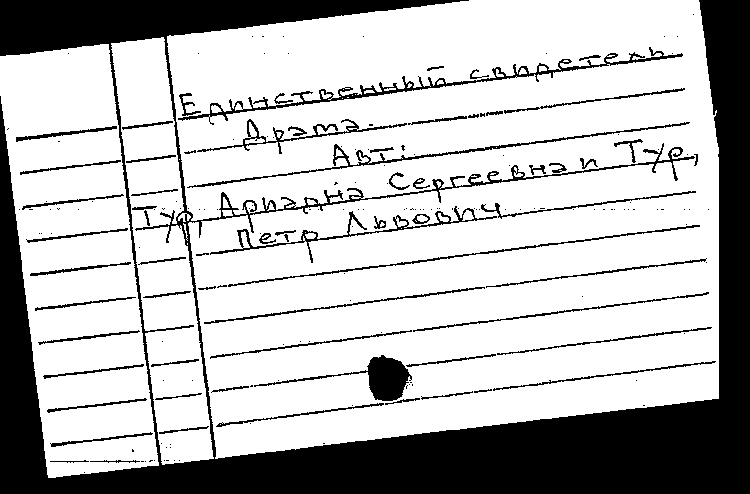 Единственный свидетель
Драма.
Авт:
Тур, Ариадна Сергеевна и Тур,
Петр Львович